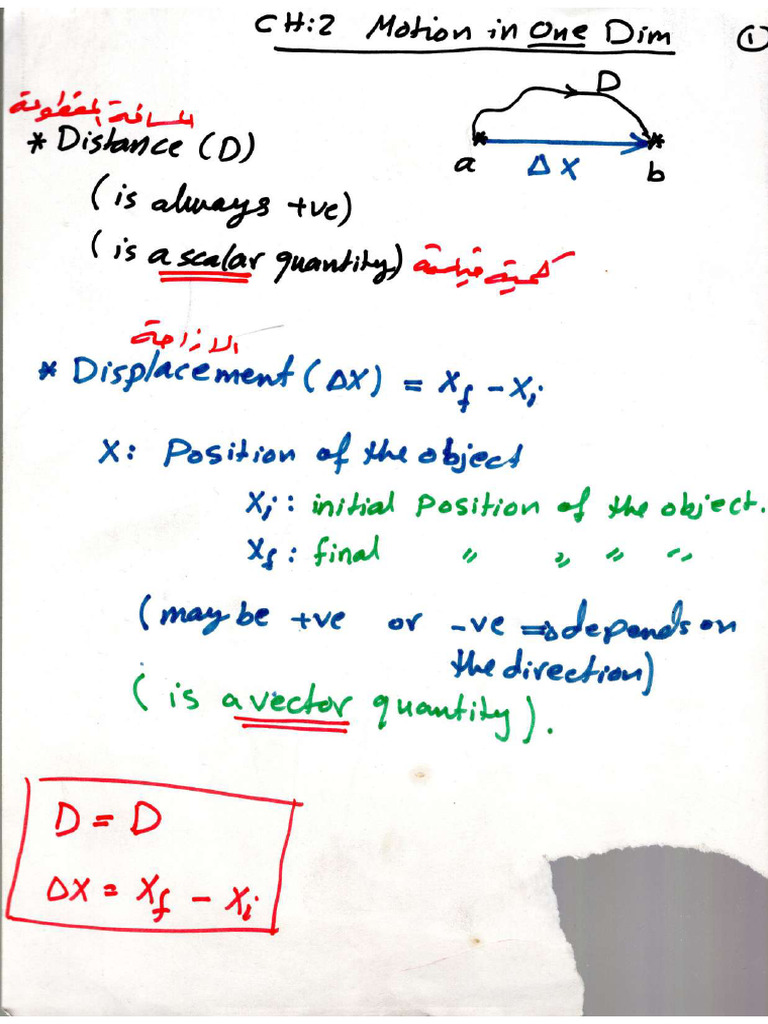 CH:2 Motion in One Dim ①
D
a Δx b
المسافة المقطوعة
* Distance (D)
(is always +ve)
(is a scalar quantity) كمية قياسية
الازاحة
* Displacement (Δx) = Xf - Xi
X: Position of the object
Xi : initial Position of the object.
Xf : final " " " "
(may be +ve or -ve ⇒ depends on
the direction)
(is a vector quantity).
D = D
Δx = Xf - Xi